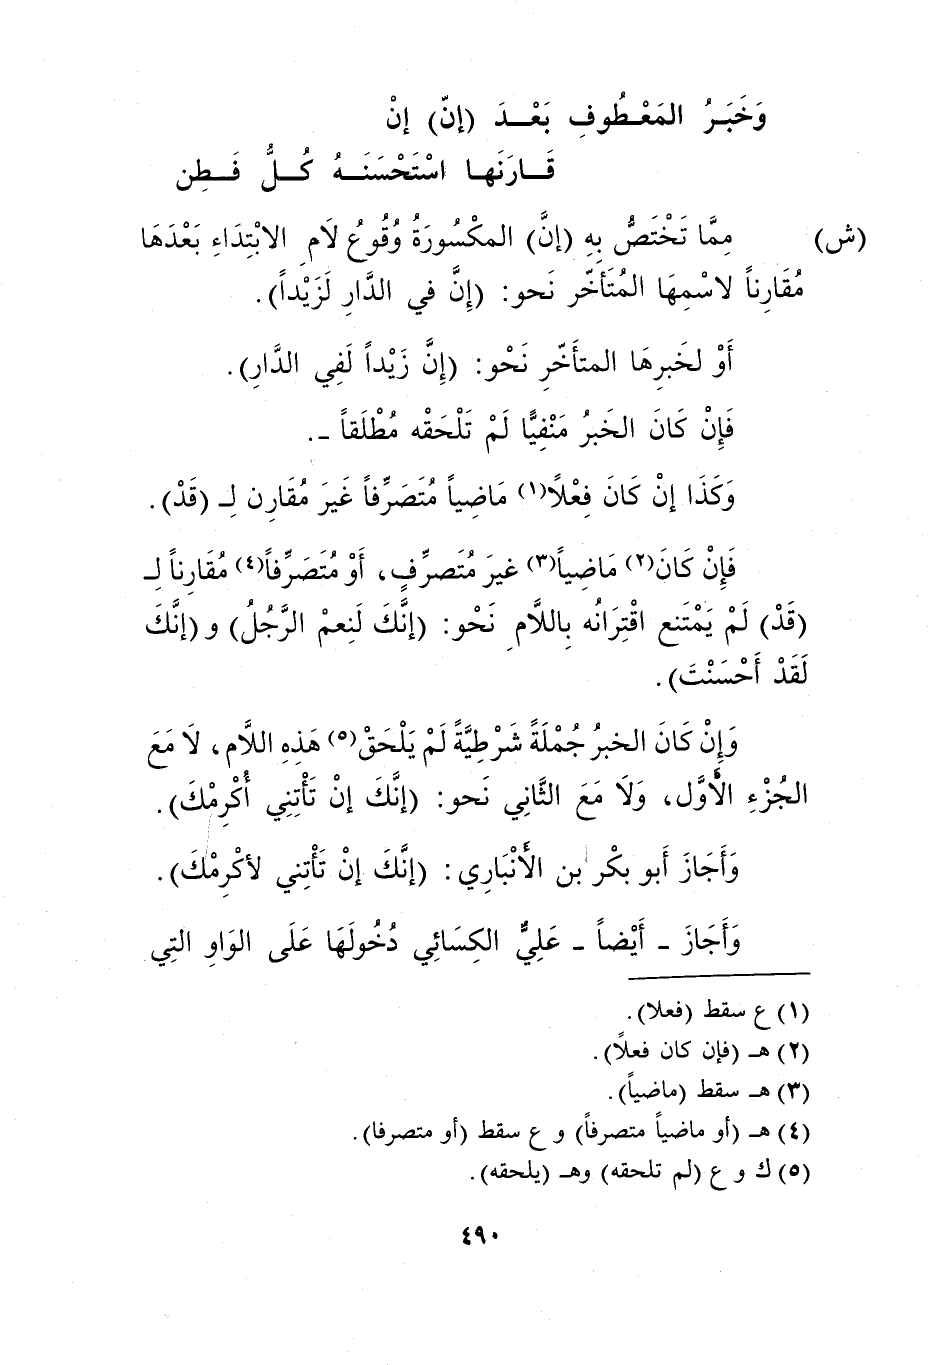 وَخَبَرُ المَعْطُوفِ بَعْدَ (إنّ) إنْ
قَارَنَها اسْتَحْسَنَهُ كُلُّ فَطِن
(ش) مِمَّا تَخْتَصُّ بِهِ (إنَّ) المكْسُورَةُ وُقُوعُ لَامِ الابْتِدَاءِ بَعْدَهَا
مُقَارِناً لاسْمِهَا المُتَأخّر نَحو: (إنَّ في الدَّارِ لَزَيْداً).
أَوْ لخَبرِهَا المتأَخّرِ نَحْو: (إنَّ زَيْداً لَفِي الدَّارِ).
فَإِنْ كَانَ الخَبرُ مَنْفِيًّا لَمْ تَلْحَقْه مُطْلَقاً -.
وَكَذَا إنْ كَانَ فِعْلًا(١) مَاضِياً مُتَصَرِّفاً غَيرَ مُقَارِن لِـ (قَدْ).
فَإِنْ كَانَ(٢) مَاضِياً(٣) غيرَ مُتَصرِّفٍ، أَوْ مُتَصَرِّفاً(٤) مُقَارِناً لِـ
(قَدْ) لَمْ يَمْتَنع اقْتِرَانُه بِاللَّامِ نَحْو: (إنَّكَ لَنِعمْ الرَّجُلُ) و (إنَّكَ
لَقَدْ أَحْسَنْتَ).
وَإِنْ كَانَ الخبرُ جُمْلَةً شَرْطِيَّةً لَمْ يَلْحَقْ(٥) هَذِهِ اللَّام، لَا مَعَ
الجُزْءِ الأَوَّل، وَلَا مَعَ الثَّانِي نَحو: (إنَّكَ إنْ تَأْتِنِي أُكْرِمْكَ).
وَأَجَازَ أبو بكْر بن الأنْبَارِي: (إنَّكَ إنْ تَأْتِني لأكْرِمْكَ).
وَأَجَازَ - أَيْضاً - عَلِيٌّ الكِسَائِي دُخُولَهَا عَلَى الوَاوِ التِي
(١) ع سقط (فعلا).
(٢) هـ (فإن كان فعلًا).
(٣) هـ سقط (ماضياً).
(٤) هـ (أو ماضياً متصرفاً) و ع سقط (أو متصرفا).
(٥) ك و ع (لم تلحقه) وهـ (يلحقه).
٤٩٠